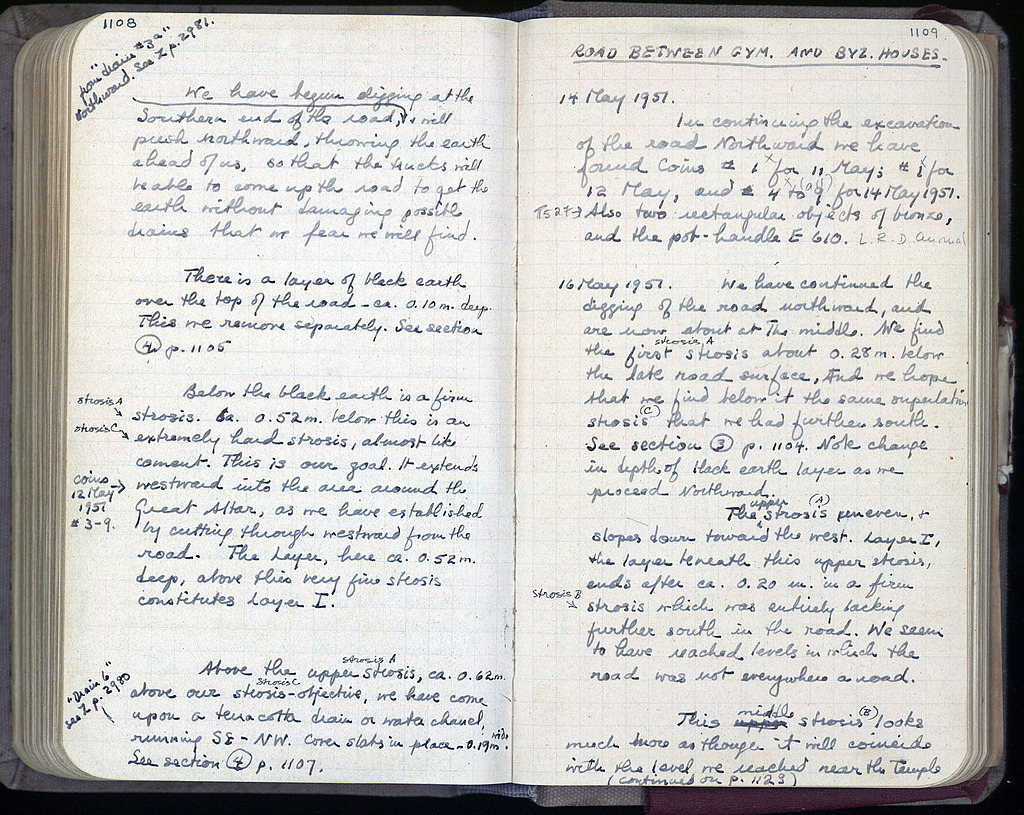 1108
from "drain #3a"
northward. see Z p. 2981.
We have begun digging at the
Southern end of the road, & will
push northward, throwing the earth
ahead of us, so that the trucks will
be able to come up the road to get the
earth without damaging possible
drains that we fear we will find.
There is a layer of black earth
over the top of the road - ca. 0.10 m. deep.
This we remove separately. See section
④ p. 1105
Below the black earth is a firm
strosis A
strosis. Ca. 0.52 m. below this is an
strosis C
extremely hard strosis, almost like
cement. This is our goal. It extends
westward into the area around the
coins
12 May
1951
#3-9.
Great Altar, as we have established
by cutting through westward from the
road. The Layer, here ca. 0.52 m.
deep, above this very fine strosis
constitutes Layer I.
strosis A
Above the upper strosis, ca. 0.62 m.
strosis C
above our strosis-objective, we have come
upon a terracotta drain or water chanel,
running SE - NW. Cover slabs in place - 0.19 m. wide
See section ④ p. 1107.
"Drain 6"
see Z p. 2980
1109
ROAD BETWEEN GYM. AND BYZ. HOUSES.
14 May 1951.
In continuing the excavation
of the road Northward we have
found Coins # 1 for 11 May; # 1 for
12 May, and # 4 to 9 for 14 May 1951.
Also two rectangular objects of bronze,
and the pot-handle E 610. L.R.D. animal
16 May 1951. We have continued the
digging of the road northward, and
are now about at the middle. We find
strosis A
the first strosis about 0.28 m. below
the late road surface, And we hope
that we find below it the same
strosis (C) that we had further south.
See section ③ p. 1104. Note change
in depth of black earth layer as we
proceed Northward.
The upper strosis (A) uneven, +
slopes down toward the west. Layer I,
the layer beneath this upper strosis,
ends after ca. 0.20 m. in a firm
strosis B
strosis which was entirely lacking
further south in the road. We seem
to have reached levels in which the
road was not everywhere a road.
middle
This upper strosis (B) looks
much more as though it will coincide
with the level we reached near the Temple
(continued on p. 1123)